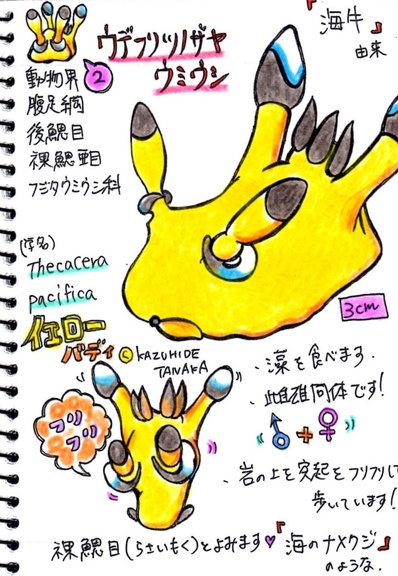 ウデフリツノザヤ
ウミウシ
『海牛』
由来
動物界
②
腹足綱
後鰓目
裸鰓亜目
フジタウミウシ科
(学名)
Thecacera
pacifica
イエロー
バディ
© KAZUHIDE
TANAKA
3cm
・藻を食べます.
・雌雄同体です!
♂+♀
フリフリ
・岩の上を突起をフリフリして
歩いています!
裸鰓目(らさいもく)とよみます♥
『海のナメクジ』
のような.